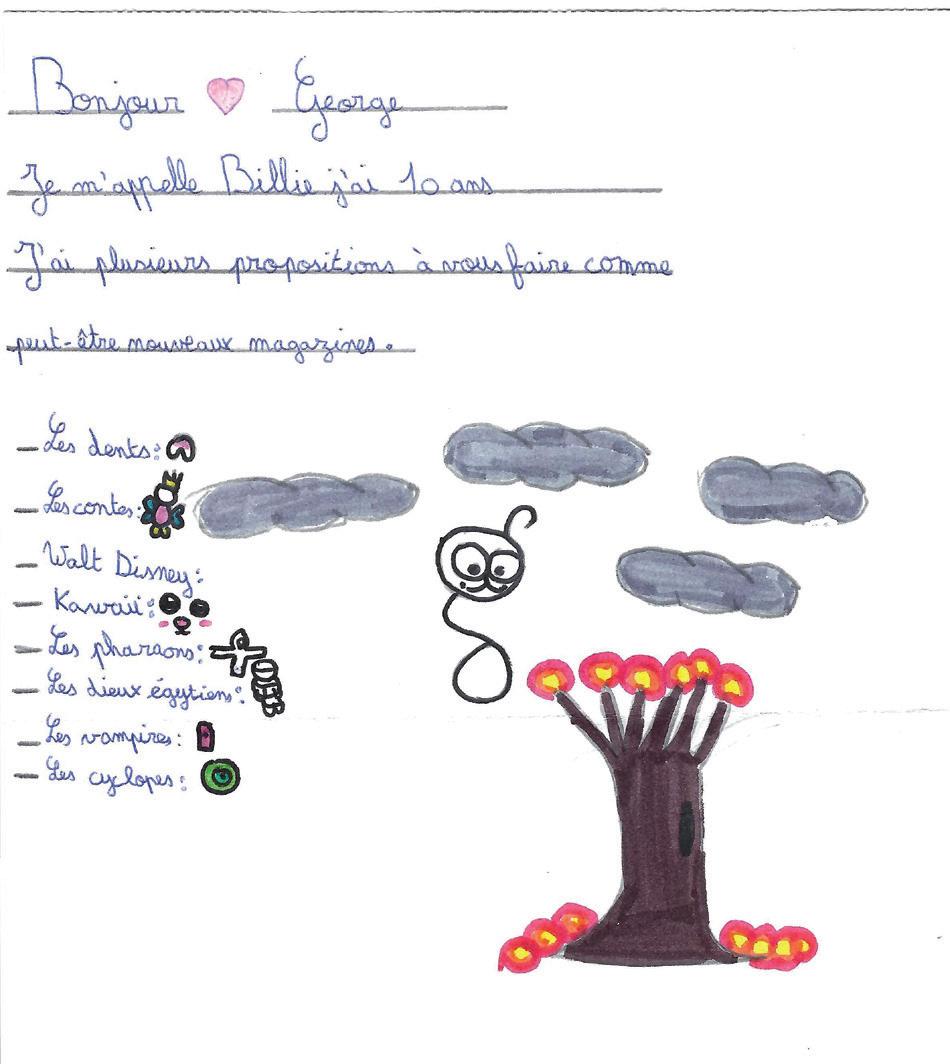 Bonjour George
Je m'appelle Billie j'ai 10 ans
J'ai plusieurs propositions à vous faire comme
peut-être nouveaux magazines.
– Les dents:
– Les contes:
– Walt Disney:
– Kawaii:
– Les pharaons:
– Les dieux égytiens:
– Les vampires:
– Les cyclopes: